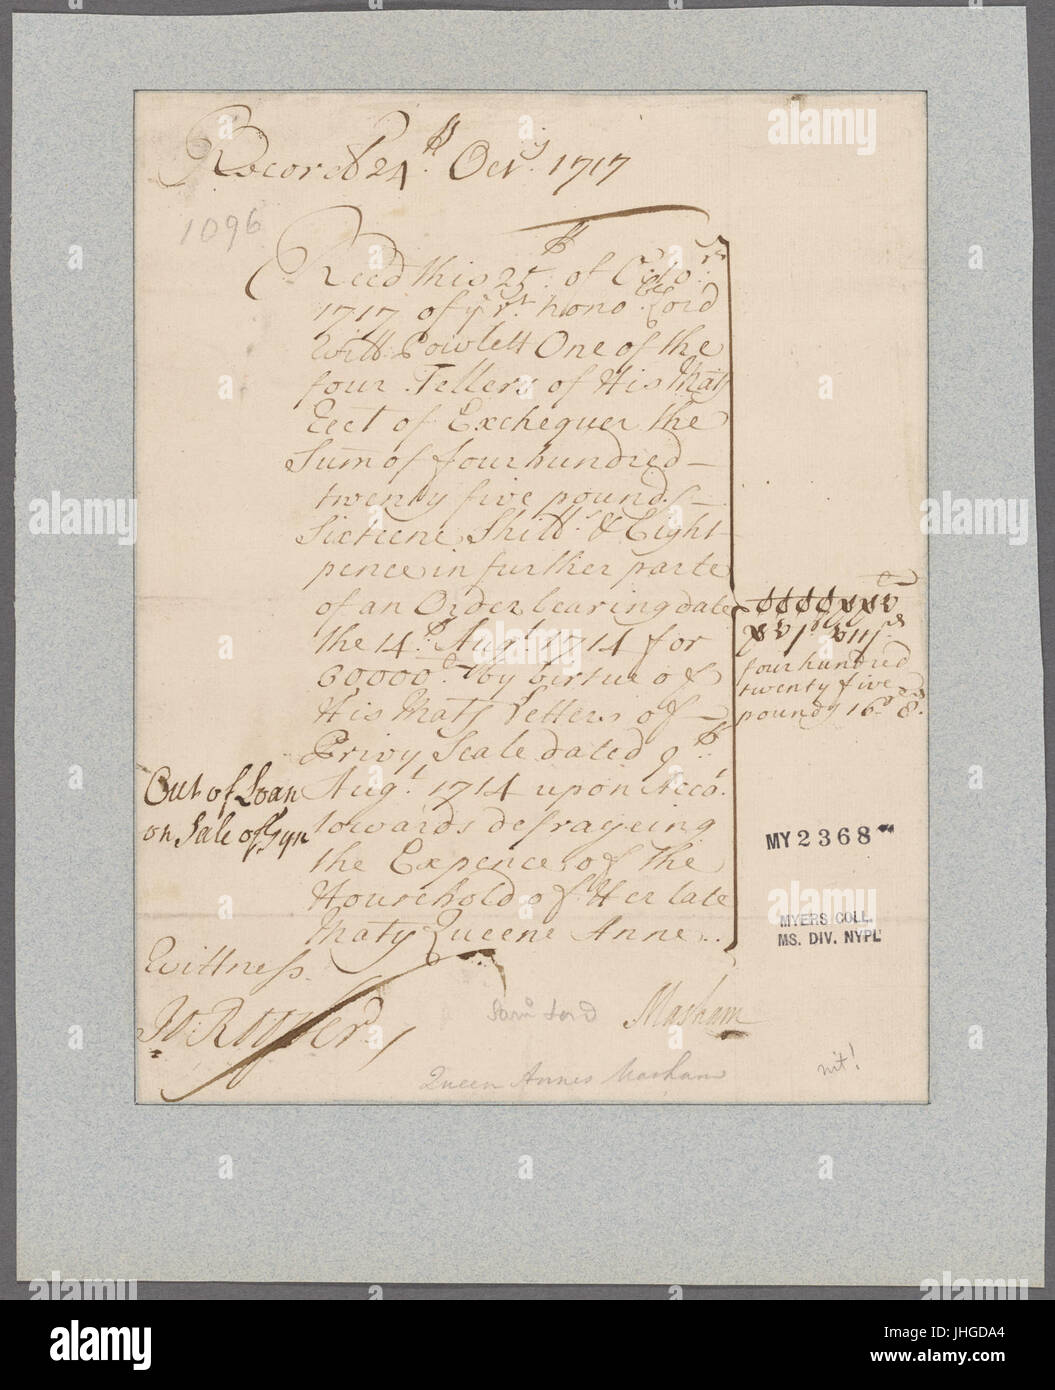 Record 24th Octr. 1717
1096
Recd this 25th of
1717 of ye Rt. Hono.ble Lord
Will: Powlett One of the
four Tellers of His Matys
Rect of Exchequer the
Sum of four hundred
twenty five pounds
Sixteene Shill.s & Eight
pence in further parte
of an Order bearing date
the 14th. Augt. 1714 for
60000 by virtue of
His Matys Letters of
Privy Seale dated 9th.
Augt. 1714 upon Acco.t
towards defrayeing
the Expence of the
Household of Her late
Maty Queene Anne..
xvjs viijd
four hundred
twenty five
pounds 16s 8d.
Out of Loan
on Sale of Tyn
Wittness
MY 2368
MYERS COLL.
MS. DIV. NYPL
Masham
Queen Annes Masham
alamy
Image ID: JHGDA4
www.alamy.com